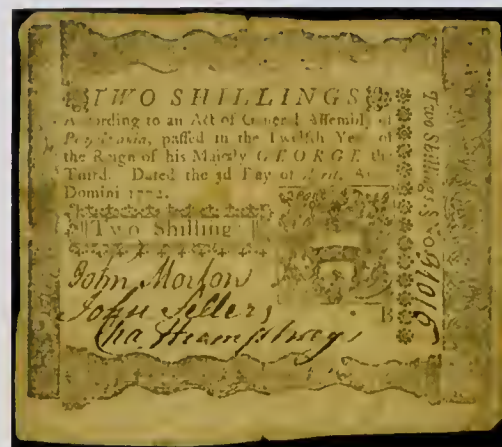 TWO SHILLINGS
According to an Act of General Assembly of
Pensylvania, passed in the Twelfth Year of
the Reign of his Majesty GEORGE the
Third. Dated the 3d Day of April, A
Domini 1772.
Two Shilling
John Morton
John Sellers
Cha Humphreys
B
Two Shillings
No
91016